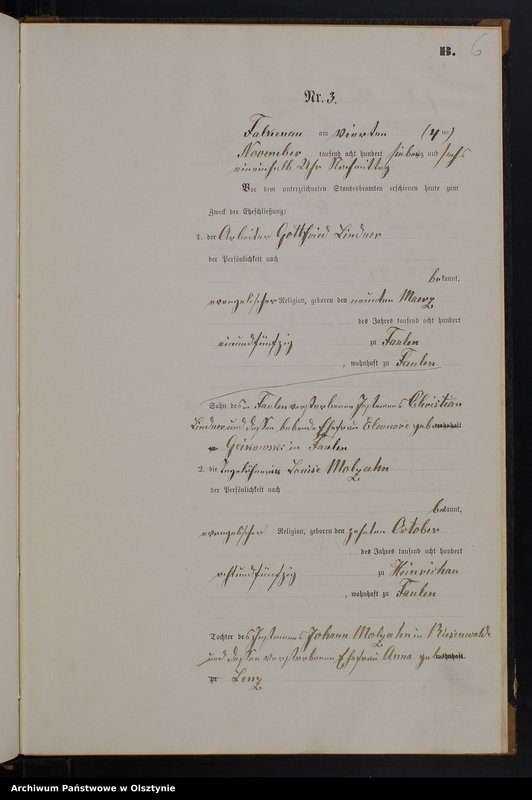 B. 6
Nr. 3.
Falkenau am vierten (4ten)
November tausend acht hundert siebenzig und sechs
ein einhalb Uhr Nachmittag
Vor dem unterzeichneten Standesbeamten erschienen heute zum
Zweck der Eheschließung:
1. der Arbeiter Gottfried Lindner
der Persönlichkeit nach
bekannt,
evangelischer Religion, geboren den neunten Maerz
des Jahres tausend acht hundert
einundfünfzig zu Faulen
, wohnhaft zu Faulen
Sohn des in Faulen verstorbenen Instmanns Christian
Lindner und dessen lebende Ehefrau Eleonore geborene wohnhaft
zu in Faulen
2. die Tagelöhnerin Louise Molzahn
der Persönlichkeit nach
bekannt,
evangelischer Religion, geboren den zehnten October
des Jahres tausend acht hundert
achtundfünfzig zu Heinrichau
, wohnhaft zu Faulen
Tochter des Instmanns Johann Molzahn in Riesenwalde
und dessen verstorbenen Ehefrau Anna geb wohnhaft
zu Lenz
Archiwum Państwowe w Olsztynie